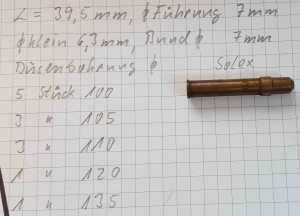 L = 39,5 mm, ϕ Führung 7 mm
ϕ klein 6,3 mm, Bund ϕ 7 mm
Düsenbohrung ϕ Solex
5 Stück 100
3 " 105
3 " 110
1 " 120
1 " 135